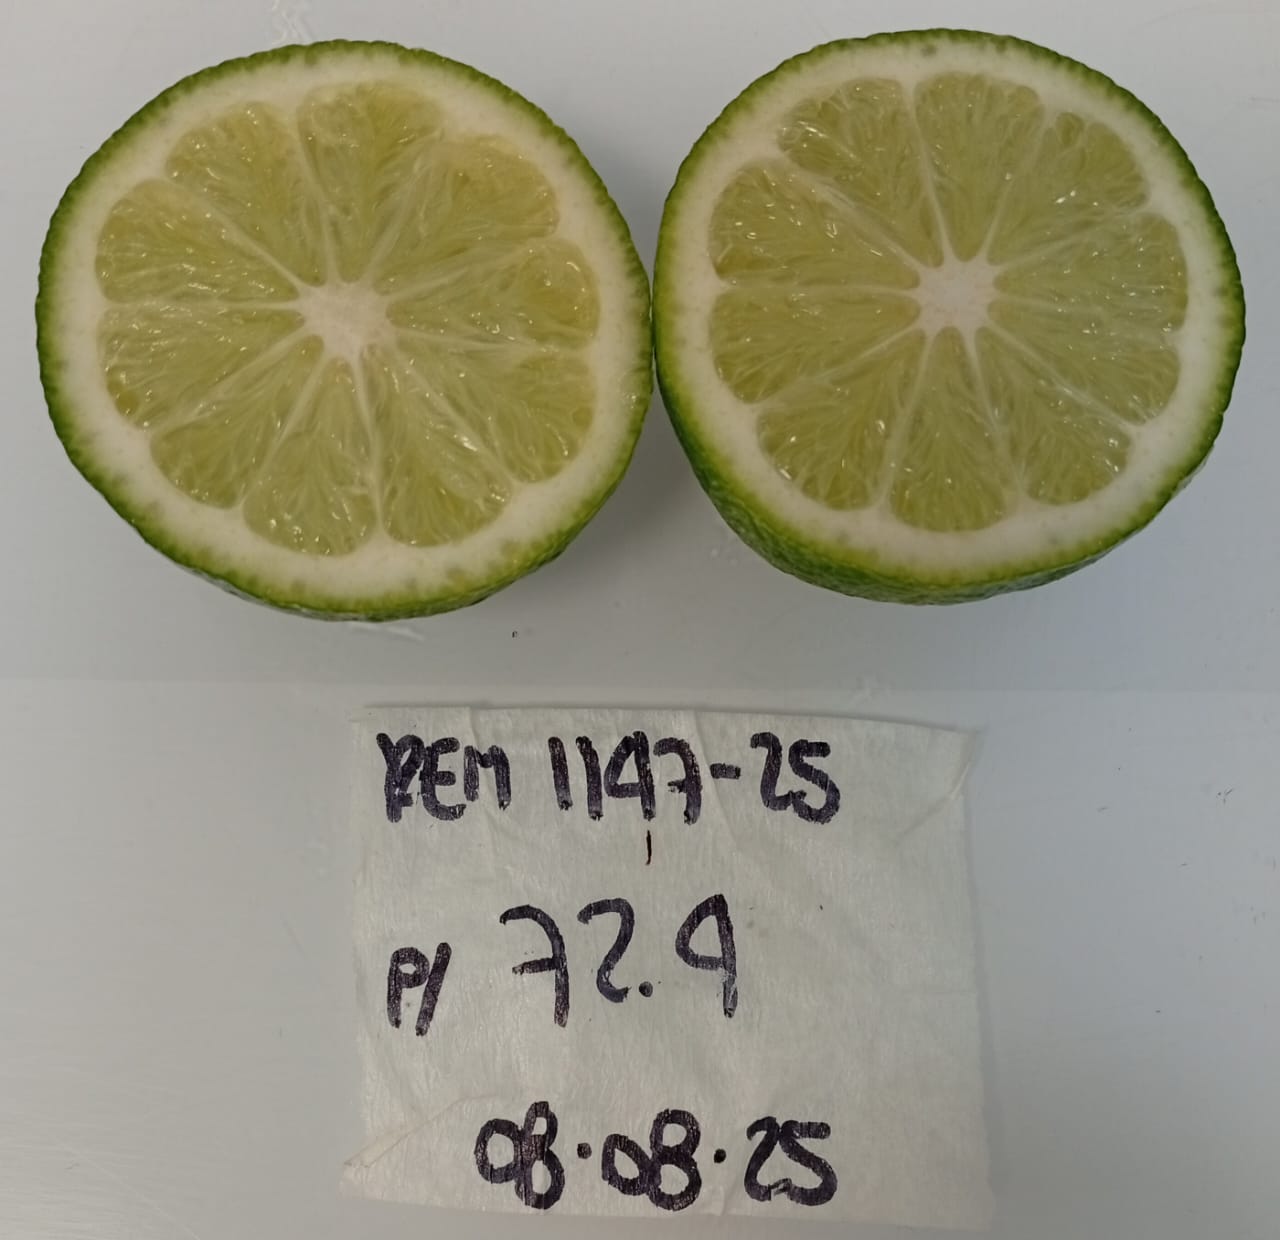 REM 1147-25
P/ 72.9
08.08.25